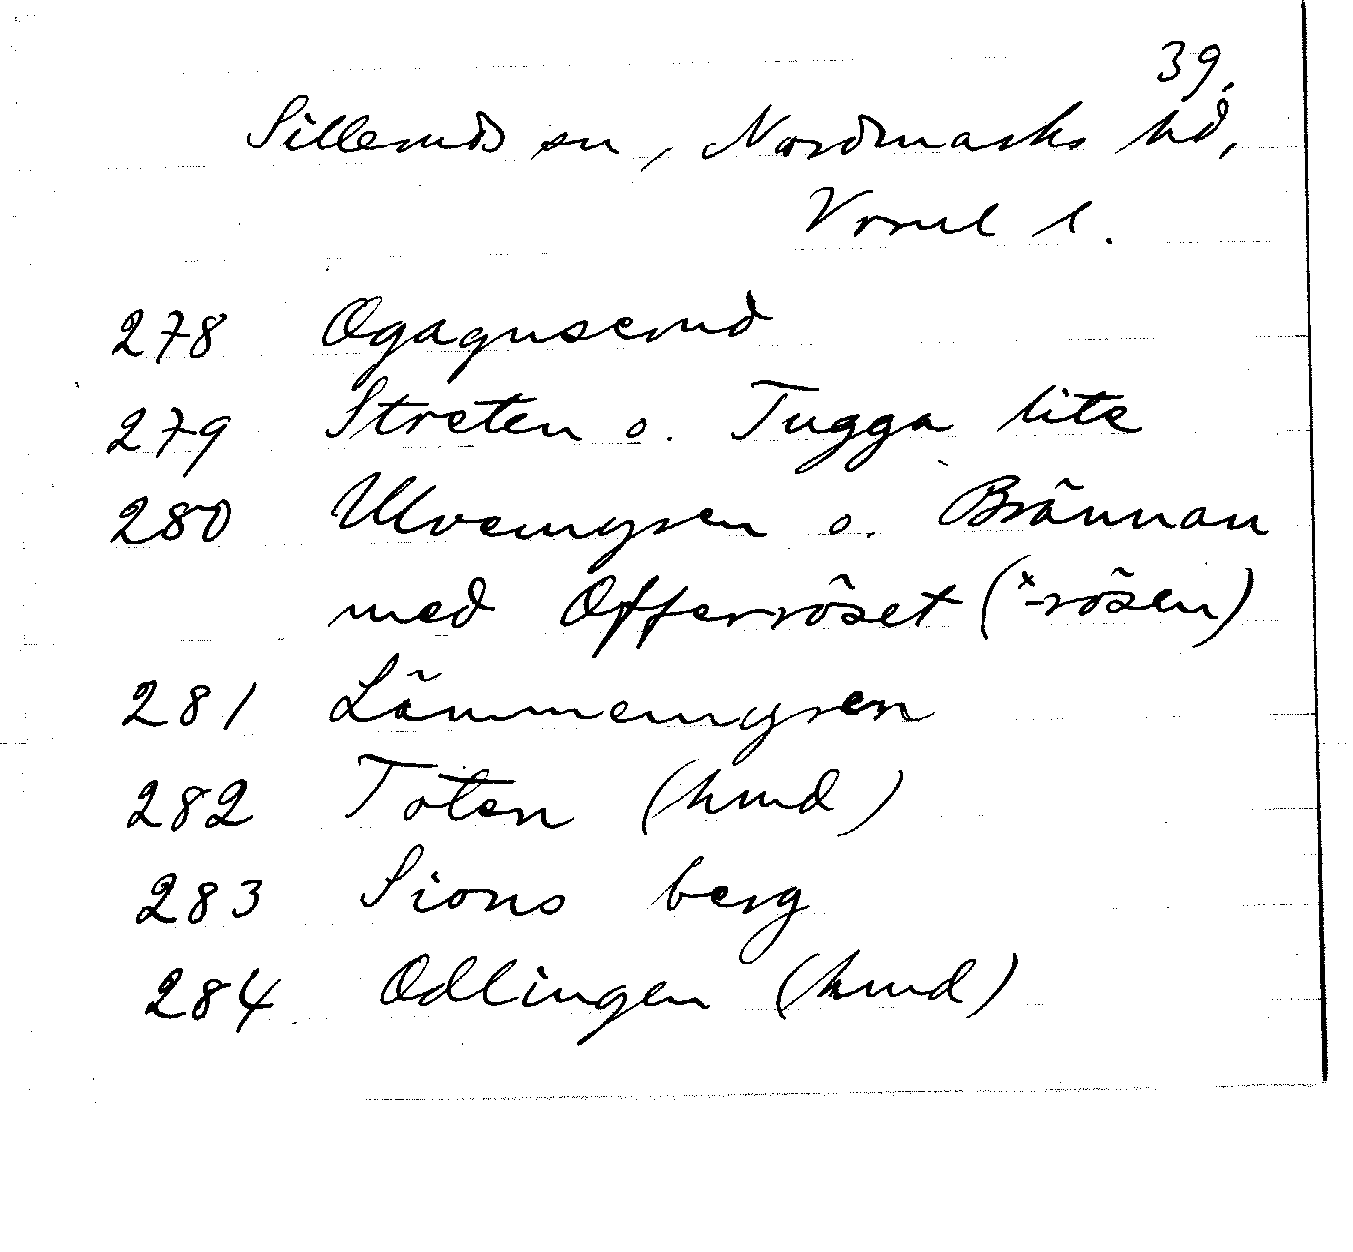 39.
Silleruds sn, Nordmarks hd,
Vrml l.
278 Ogagnserud
279 Streten o. Tugga lite
280 Ulvemyren o. Brännan
med Offerröset (x-rösen)
281 Lämmemyren
282 Toten (hund)
283 Sions berg
284 Odlingen (hund)